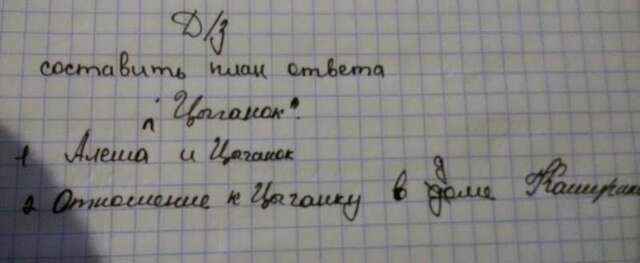 Д/З
составить план ответа
"Цыганок".
1 Алеша и Цыганок
2 Отношение к Цыганку в доме